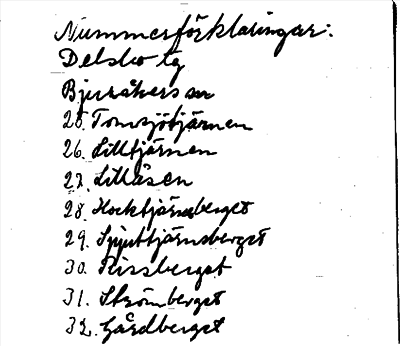 Nummerförklaringar:
Delsbo tg
Bjuråkers sn
25. Tomsjötjärnen
26. Lilltjärnen
27. Lillåsen
28. Hocktjärnsberget
29. Spjuttjärnsberget
30. Rissberget
31. Strömberget
32. Gårdberget